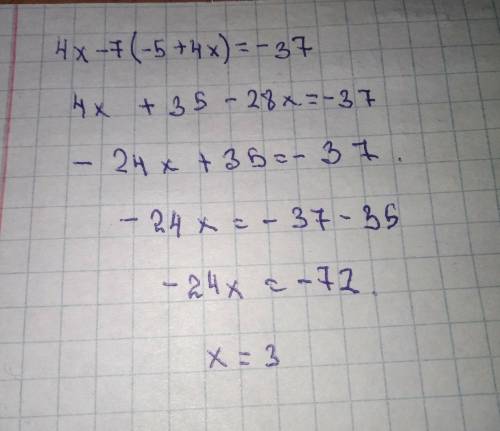 4x-7(-5+4x)=-37
4x +35-28x=-37
- 24x+35=-37.
-24x=-37-35
-24x=-72.
x=3